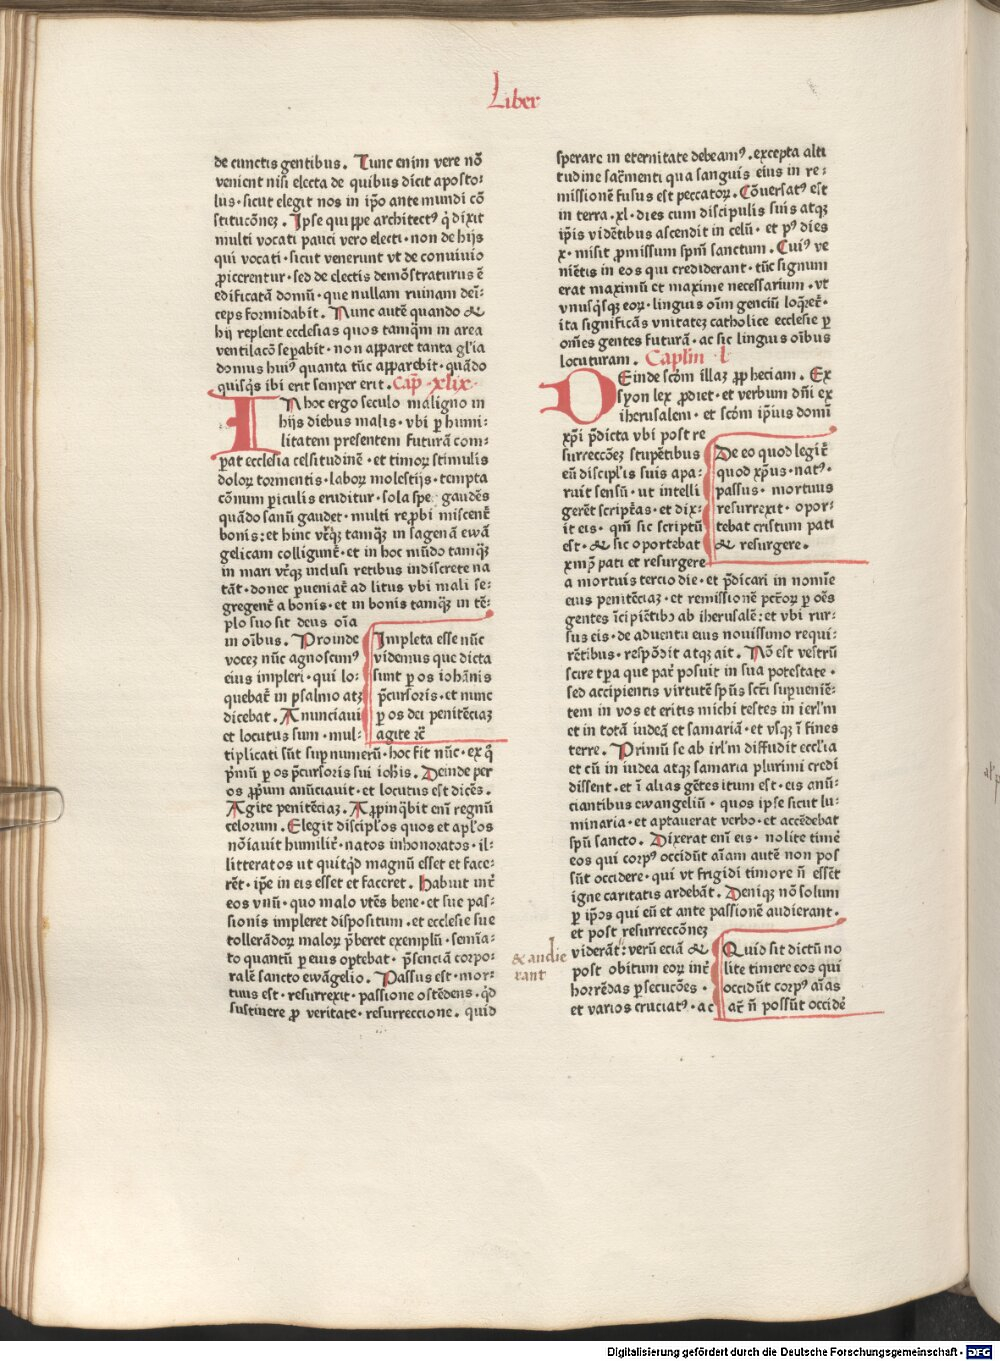 Liber
de cunctis gentibus. Tunc enim vere nō
venient nisi electa de quibus dicit aposto⸗
lus·sicut elegit nos in ip̄o ante mundi cō
stitucōnez. Ipse quippe architectꝰ q̄ dixit
multi vocati pauci vero electi·non de hijs
qui vocati·sicut venerunt vt de conuiuio
ꝓiccrentur·sed de electis demōstraturus ē
edificatā domū·que nullam ruinam dei̅⸗
ceps formidabit. Nunc autē quando &
hij replent ecclesias quos tamꝗ̄m in area
ventilacō seꝑabit·non apparet tanta gl'ia
domus huiꝰ quanta tūc apparebit·quādo
quisq̄s ibi erit semper erit. Cap̄·xlix·
IN hoc ergo seculo maligno in
hijs diebus malis·vbi ꝑ humi⸗
litatem presentem futurā com⸗
ꝑat ecclesia celsitudinē·et timoꝝ stimulis
doloꝝ tormentis·laboꝝ molestijs·tempta
cōnum ꝑiculis eruditur·sola spe gaudēs
quādo sanū gaudet·multi reꝓbi miscent᷑
bonis:et hinc vt᷑qꝫ tamqꝫ in sagenā ewā
gelicam colligunt᷑·et in hoc mūdo tamqꝫ
in mari vt᷑qꝫ inclusi retibus indiscrete na
tāt·donec ꝑueniat᷑ ad litus vbi mali se⸗
gregent᷑ a bonis·et in bonis tamqꝫ in tē⸗
plo suo sit deus oīa
in oībus. Proinde
vocez nūc agnoscimꝰ
eius impleri·qui lo⸗
quebat᷑ in psalmo atz
dicebat. Anunciaui
et locutus sum·mul⸗
Impleta esse nūc
videmus que dicta
sunt ꝑ os iohānis
p̄cursoris·et nunc
ꝑ os dei penitēciaz
agite rc̄
tiplicati sūt suꝑ numerū·hoc fit nūc·ex q̄
p̄mū ꝑ os p̄cursoris sui ioh̄is. Deinde per
os ꝓpum anūciauit·et locutus est dicēs.
Agite penitēciaz. Aꝓpinq̄bit eni̅ regnū
celorum. Elegit discip̄los quos et ap̄los
nōiauit humilit᷑·natos inhonoratos·il⸗
litteratos ut quitq̄d magnū esset et face⸗
rēt·ip̄e in eis esset et faceret. habuit int᷑
eos vnū·quo malo vtēs bene·et sue pas⸗
sionis impleret dispositum·et ecclesie sue
tollerādoꝝ maloꝝ p̄beret exemplū·semia̅⸗
to quantū ꝑ eius optebat·p̄senciā corpo⸗
ralē sancto ewāgelio. Passus est·mor⸗
tuus est·resurrexit·passione ostēdens·q̄d
sustinere ꝓ veritate·resurreccione·quid
sperare in eternitate debeamꝰ·excepta alti
tudine sacr̄menti qua sanguis eius in re⸗
missionē fusus est peccatoꝝ. Cōuersatꝰ est
in terra·xl·dies cum discipulis suis atqꝫ
ip̄is vidētibus ascendit in celū·et pꝰ dies
x·misit ꝓmissum sp̄m sanctum. Cuiꝰ ve
niētis in eos qui crediderant·tūc signum
erat maximū et maxime necessarium·vt
vnusq̄sqꝫ eoꝝ·linguis oīm genciū loq̄ret᷑·
ita significās vnitatez catholice ecclesie ꝑ
om̄es gentes futurā·ac sic linguis oībus
locuturam. Capl̄m l
DEinde scd̄m illaz ꝓpheciam. Ex
syon lex ꝓdiet·et verbum dn̄i ex
iherusalem·et scd̄m ip̄ius domi̅
xp̄i p̄dicta vbi post re
surreccōez stupētibus
eū discipl'is suis apa⸗
ruit sensū·ut intelli
gerēt script᷑as·et dix⸗
it eis·qm̄ sic scriptū
est·& sic oportebat
xm̄p pati et resurgere
De eo quod legit᷑
quod xp̄us·natꝰ·
passus·mortuus
resurrexit·opor⸗
tebat cristum pati
& resurgere.
a mortuis tercio die·et p̄dicari in nomīe
eius penitēciaz·et remissionē pct̄oꝝ ꝑ oēs
gentes īcipiētibꝰ ab iherusalē:et vbi rur⸗
sus eis·de aduentu eius nouissimo requi⸗
rētibus·respōdit atqꝫ ait. Nō est vestrū
scire tp̄a que pat᷑ posuit in sua potestate·
sed accipientis virtutē sp̄us sc̄ti suꝑueniē⸗
tem in vos et eritis michi testes in ierl'm
et in totā iudeā et samariā·et vsqꝫ ī fines
terre. Primū se ab irl'm diffudit eccl'ia
et cū in iudea atqꝫ samaria plurimi credi
dissent·et ī alias gētes itum est·eis anū⸗
ciantibus ewangeliū·quos ipse sicut lu⸗
minaria·et aptauerat verbo·et accēdebat
sp̄u sancto. Dixerat eni̅ eis·nolite timē
eos qui corpꝰ occidūt aīam autē non pos
sūt occidere·qui vt frigidi timore n̄ essēt
igne caritatis ardebāt. Deniqꝫ nō solum
ꝑ ip̄os qui eū et ante passionē audierant·
et post resurreccōnez
viderāt: verū eciā &
post obitum eoꝝ int᷑
horrēdas ꝑsecucōes·
et varios cruciatꝰ·ac
Quid sit dictū no
lite timere eos qui
occidūt corpꝰ aīas
at᷑ n̄ possūt occidē
& audie
rant
Digitalisierung gefördert durch die Deutsche Forschungsgemeinschaft - DFG